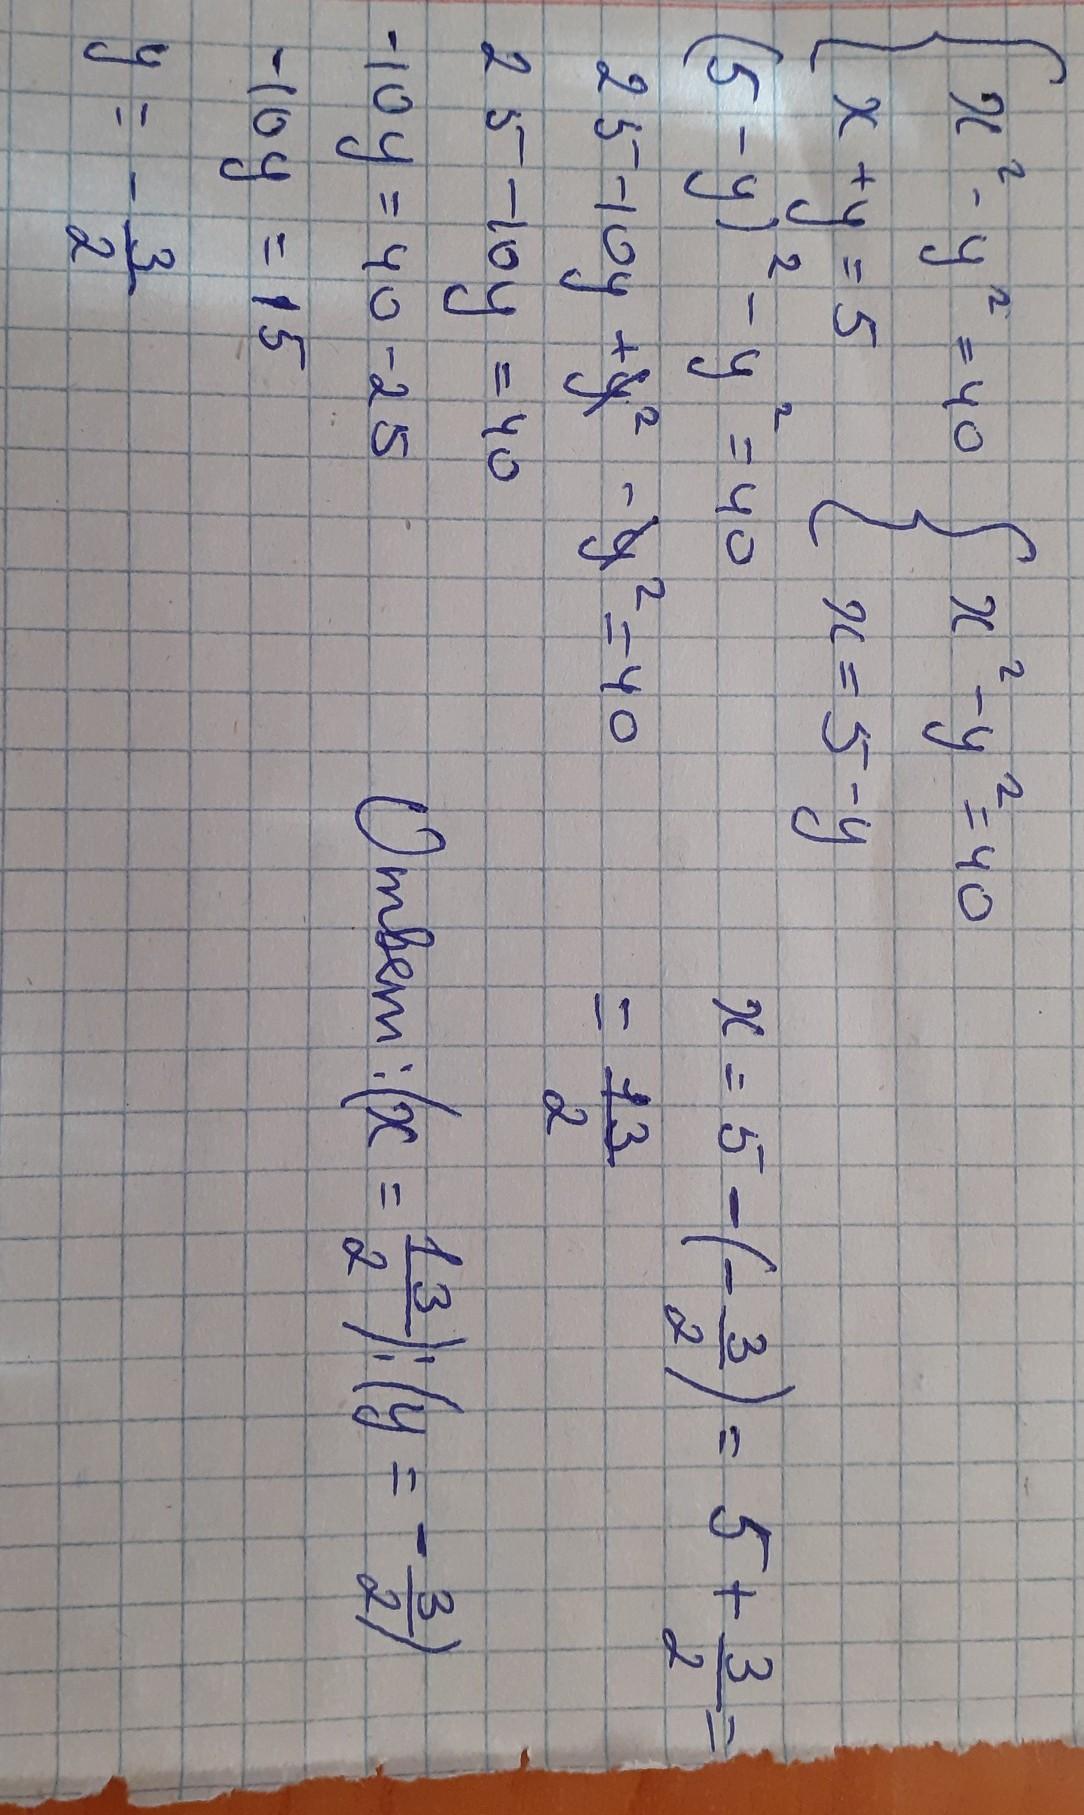 { x² - y² = 40 { x² - y² = 40
{ x + y = 5 { x = 5 - y
(5 - y)² - y² = 40
25 - 10y + y² - y² = 40
25 - 10y = 40
-10y = 40 - 25
-10y = 15
y = -3/2
x = 5 - (-3/2) = 5 + 3/2 =
= 13/2
Ответ: (x = 13/2); (y = -3/2)